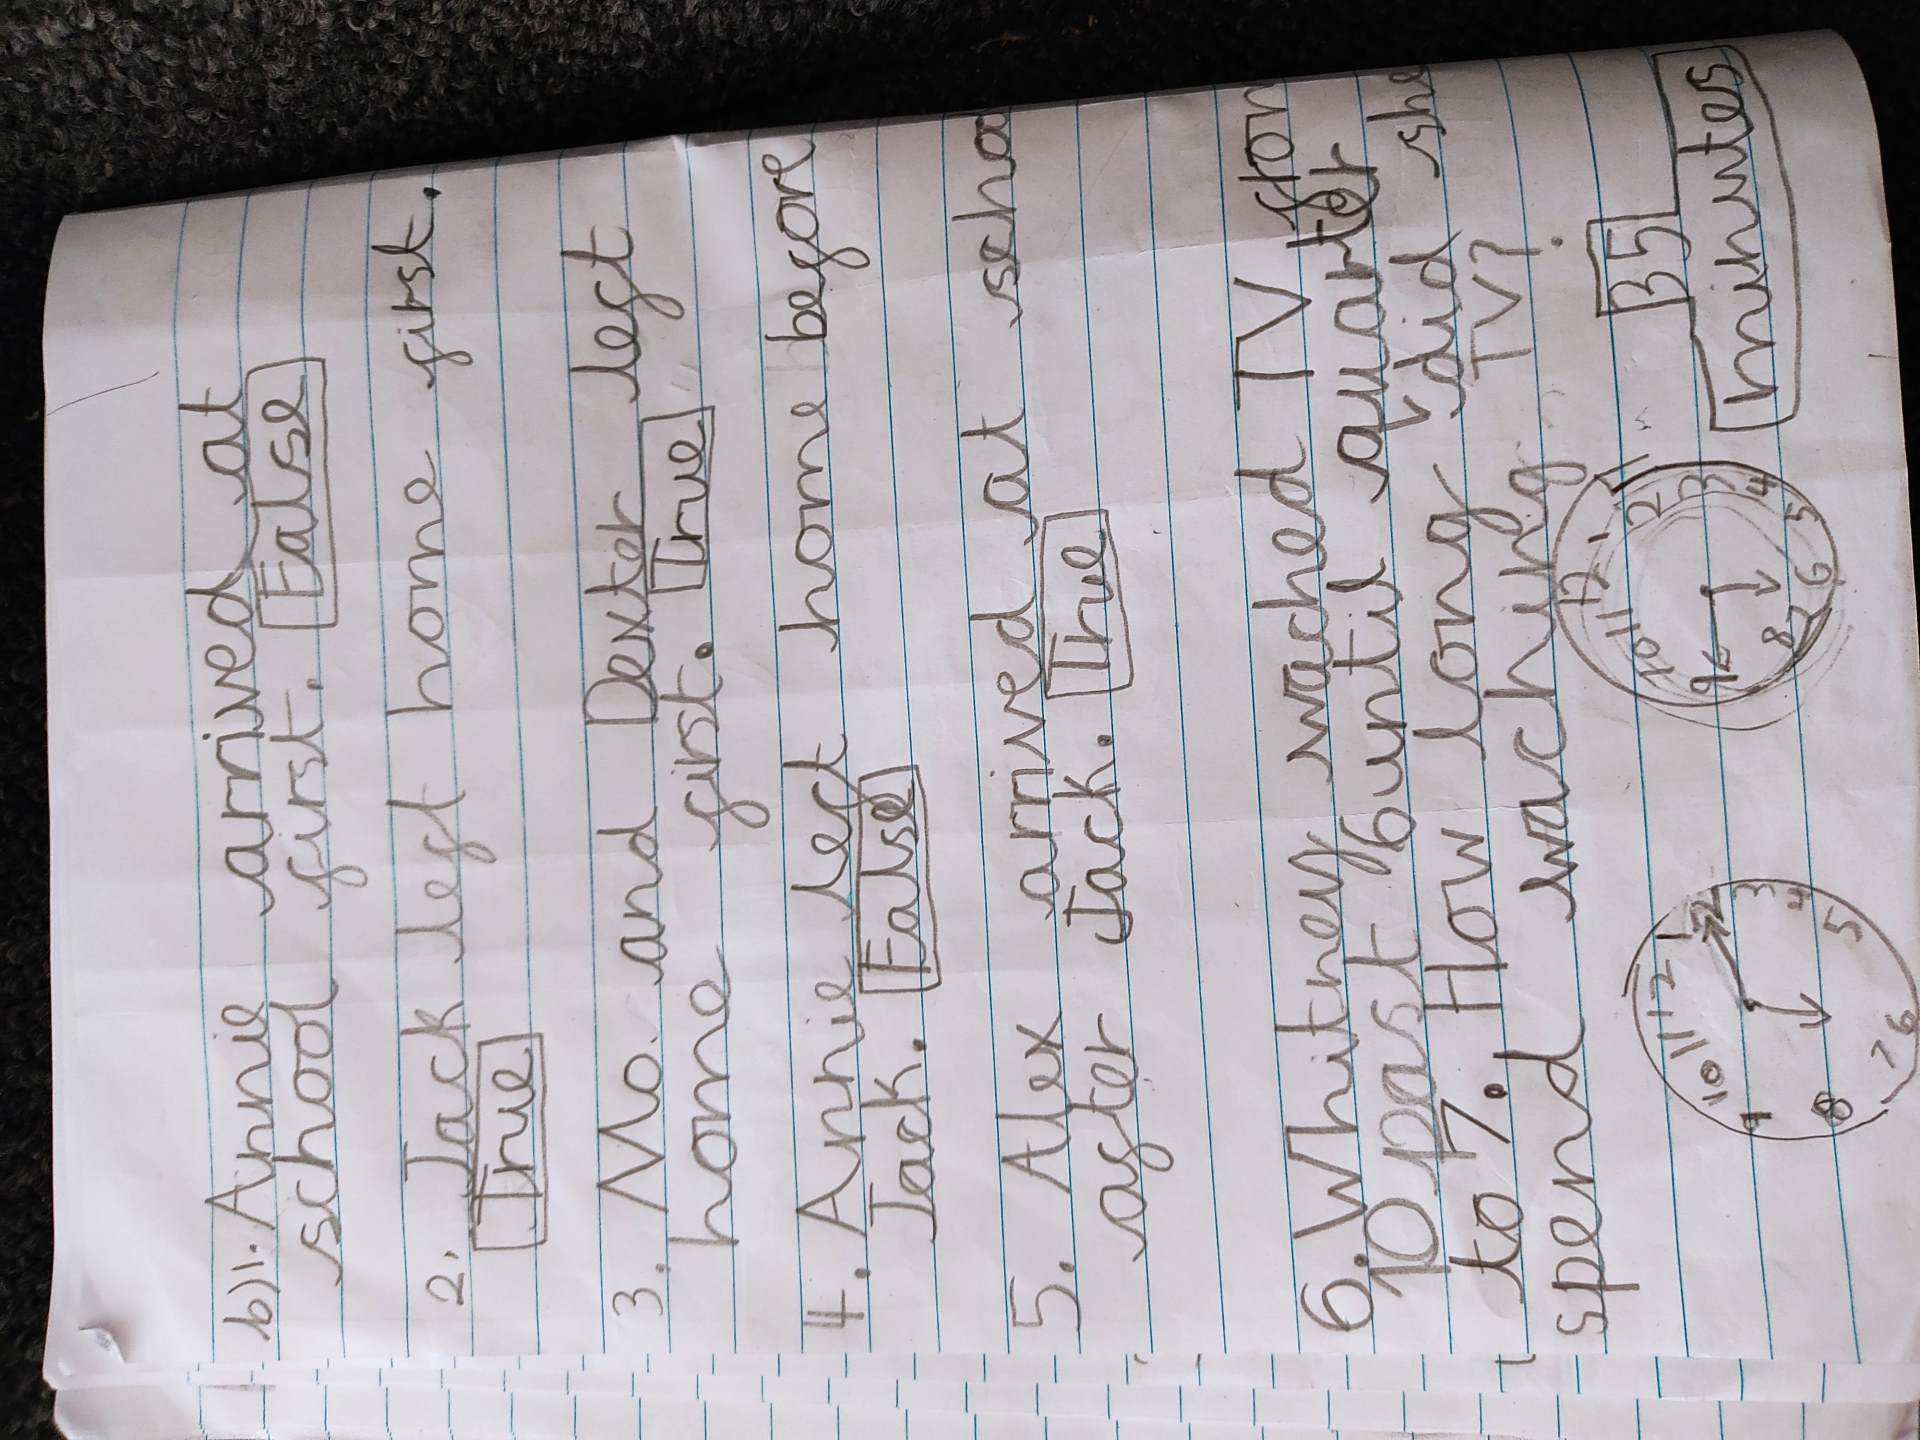 b)1. Annie arrived at
school first. False
2. Jack left home first.
True
3. Mo and Dexter left
home first. True
4. Annie left home before
Jack. False
5. Alex arrived at schoo
after Jack. True
6. Whitney wached TV from
10 past 6 until quarter
to 7. How long did she
spend waching TV?
12 1 2 3 4 5 6 7 8 9 10 11
12 1 2 3 4 5 6 7 8 9 10 11
35
minutes